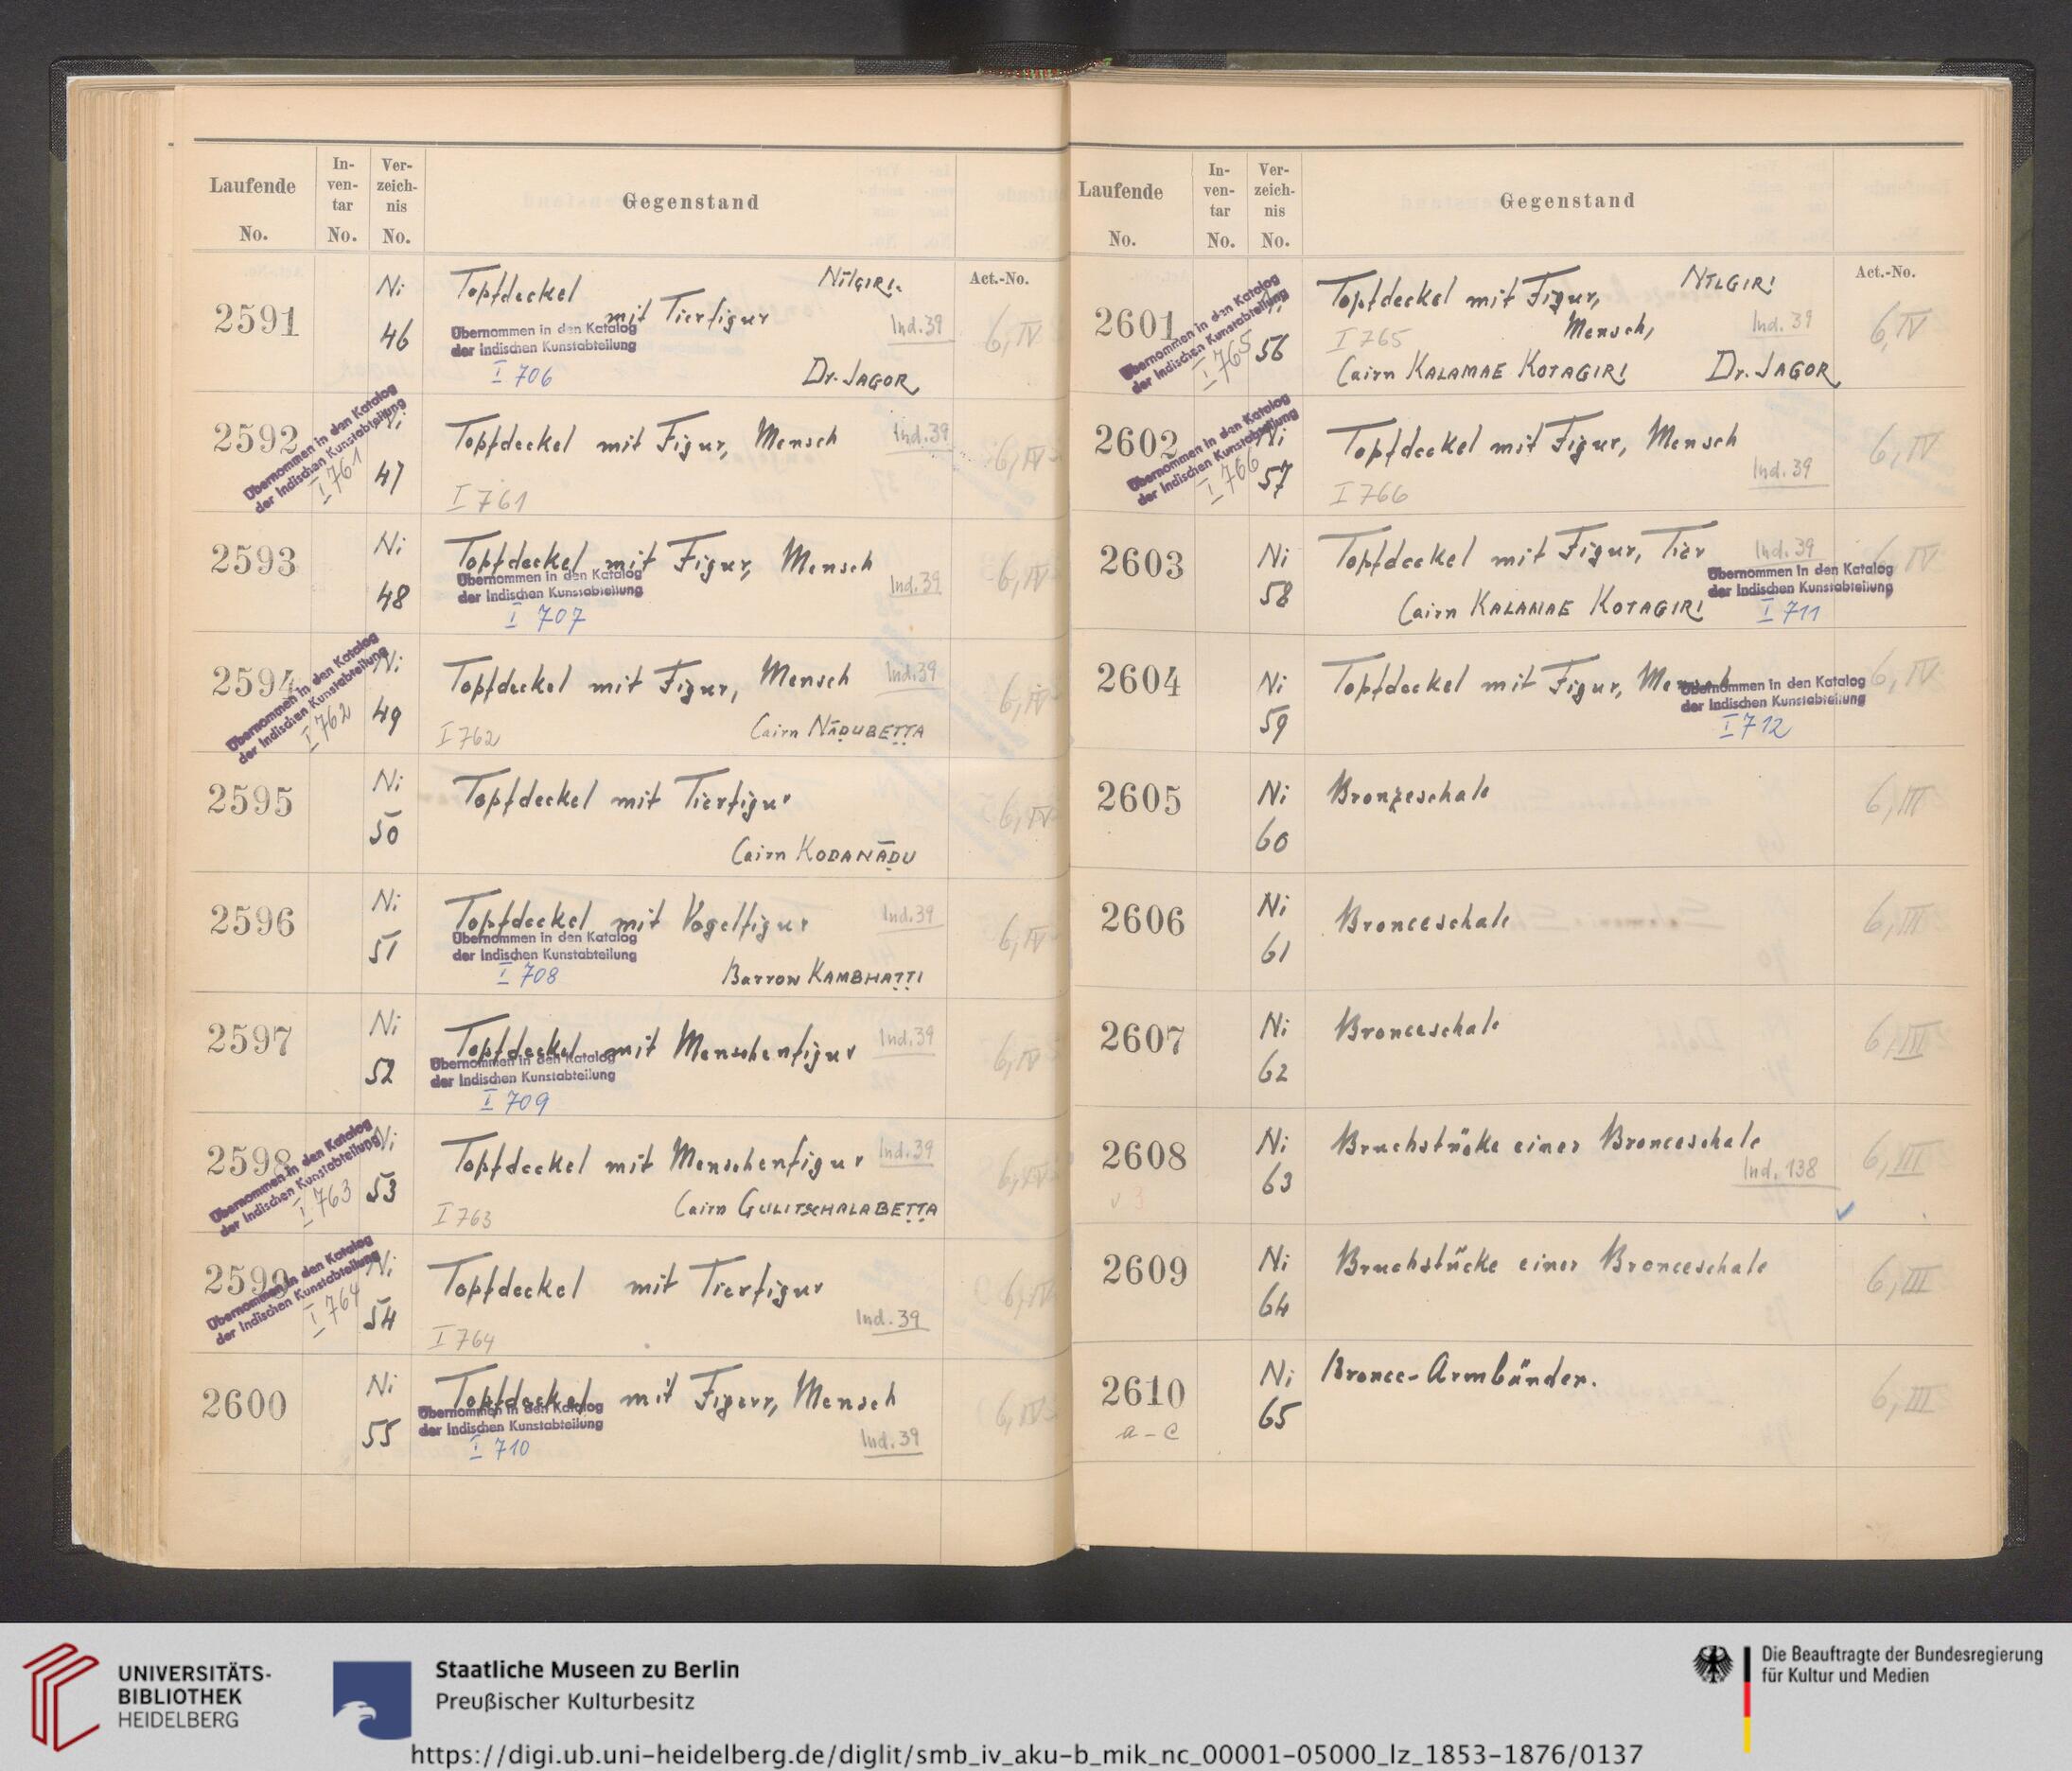 Laufende No.
In-ven-tar No.
Ver-zeich-nis No.
Gegenstand
Act.-No.
2591
Ni 46
Topfdeckel NĪLGIRI.
mit Tierfigur Ind. 39 6, IV
Übernommen in den Katalog
der Indischen Kunstabteilung
I 706 Dr. JAGOR
2592
Ni 47
Übernommen in den Katalog
der Indischen Kunstabteilung
I 761
Topfdeckel mit Figur, Mensch Ind. 39 6, IV
I 761
2593
Ni 48
Topfdeckel mit Figur, Mensch 6, IV
Übernommen in den Katalog
der Indischen Kunstabteilung Ind. 39
I 707
2594
Ni 49
Übernommen in den Katalog
der Indischen Kunstabteilung
I 762
Topfdeckel mit Figur, Mensch Ind. 39 6, IV
I 762 Cairn NĀḌUBEṬṬA
2595
Ni 50
Topfdeckel mit Tierfigur 6, IV
Cairn KODANĀḌU
2596
Ni 51
Topfdeckel mit Vogelfigur Ind. 39 6, IV
Übernommen in den Katalog
der Indischen Kunstabteilung
I 708 Barrow KAMBHAṬṬI
2597
Ni 52
Topfdeckel mit Menschenfigur Ind. 39 6, IV
Übernommen in den Katalog
der Indischen Kunstabteilung
I 709
2598
Ni 53
Übernommen in den Katalog
der Indischen Kunstabteilung
I 763
Topfdeckel mit Menschenfigur Ind. 39 6, IV
I 763 Cairn GULITSCHALABEṬṬA
2599
Ni 54
Übernommen in den Katalog
der Indischen Kunstabteilung
I 764
Topfdeckel mit Tierfigur 6, IV
I 764 Ind. 39
2600
Ni 55
Topfdeckel mit Figur, Mensch 6, IV
Übernommen in den Katalog
der Indischen Kunstabteilung
I 710 Ind. 39
Laufende No.
In-ven-tar No.
Ver-zeich-nis No.
Gegenstand
Act.-No.
2601
56
Übernommen in den Katalog
der Indischen Kunstabteilung
I 765
Topfdeckel mit Figur, NĪLGIRI
I 765 Mensch, Ind. 39 6, IV
Cairn KALAMAE KOTAGIRI Dr. JAGOR
2602
Ni 57
Übernommen in den Katalog
der Indischen Kunstabteilung
I 766
Topfdeckel mit Figur, Mensch 6, IV
I 766 Ind. 39
2603
Ni 58
Topfdeckel mit Figur, Tier Ind. 39 6, IV
Übernommen in den Katalog
der Indischen Kunstabteilung
Cairn KALAMAE KOTAGIRI I 711
2604
Ni 59
Topfdeckel mit Figur, Mensch 6, IV
Übernommen in den Katalog
der Indischen Kunstabteilung
I 712
2605
Ni 60
Bronzeschale 6, III
2606
Ni 61
Bronceschale 6, III
2607
Ni 62
Bronceschale 6, III
2608
Ni 63
Bruchstücke einer Bronceschale 6, III
Ind. 138
2609
Ni 64
Bruchstücke einer Bronceschale 6, III
2610
a - c
Ni 65
Bronce-Armbänder. 6, III
UNIVERSITÄTS-
BIBLIOTHEK
HEIDELBERG
Staatliche Museen zu Berlin
Preußischer Kulturbesitz
Die Beauftragte der Bundesregierung
für Kultur und Medien
https://digi.ub.uni-heidelberg.de/diglit/smb_iv_aku-b_mik_nc_00001-05000_lz_1853-1876/0137